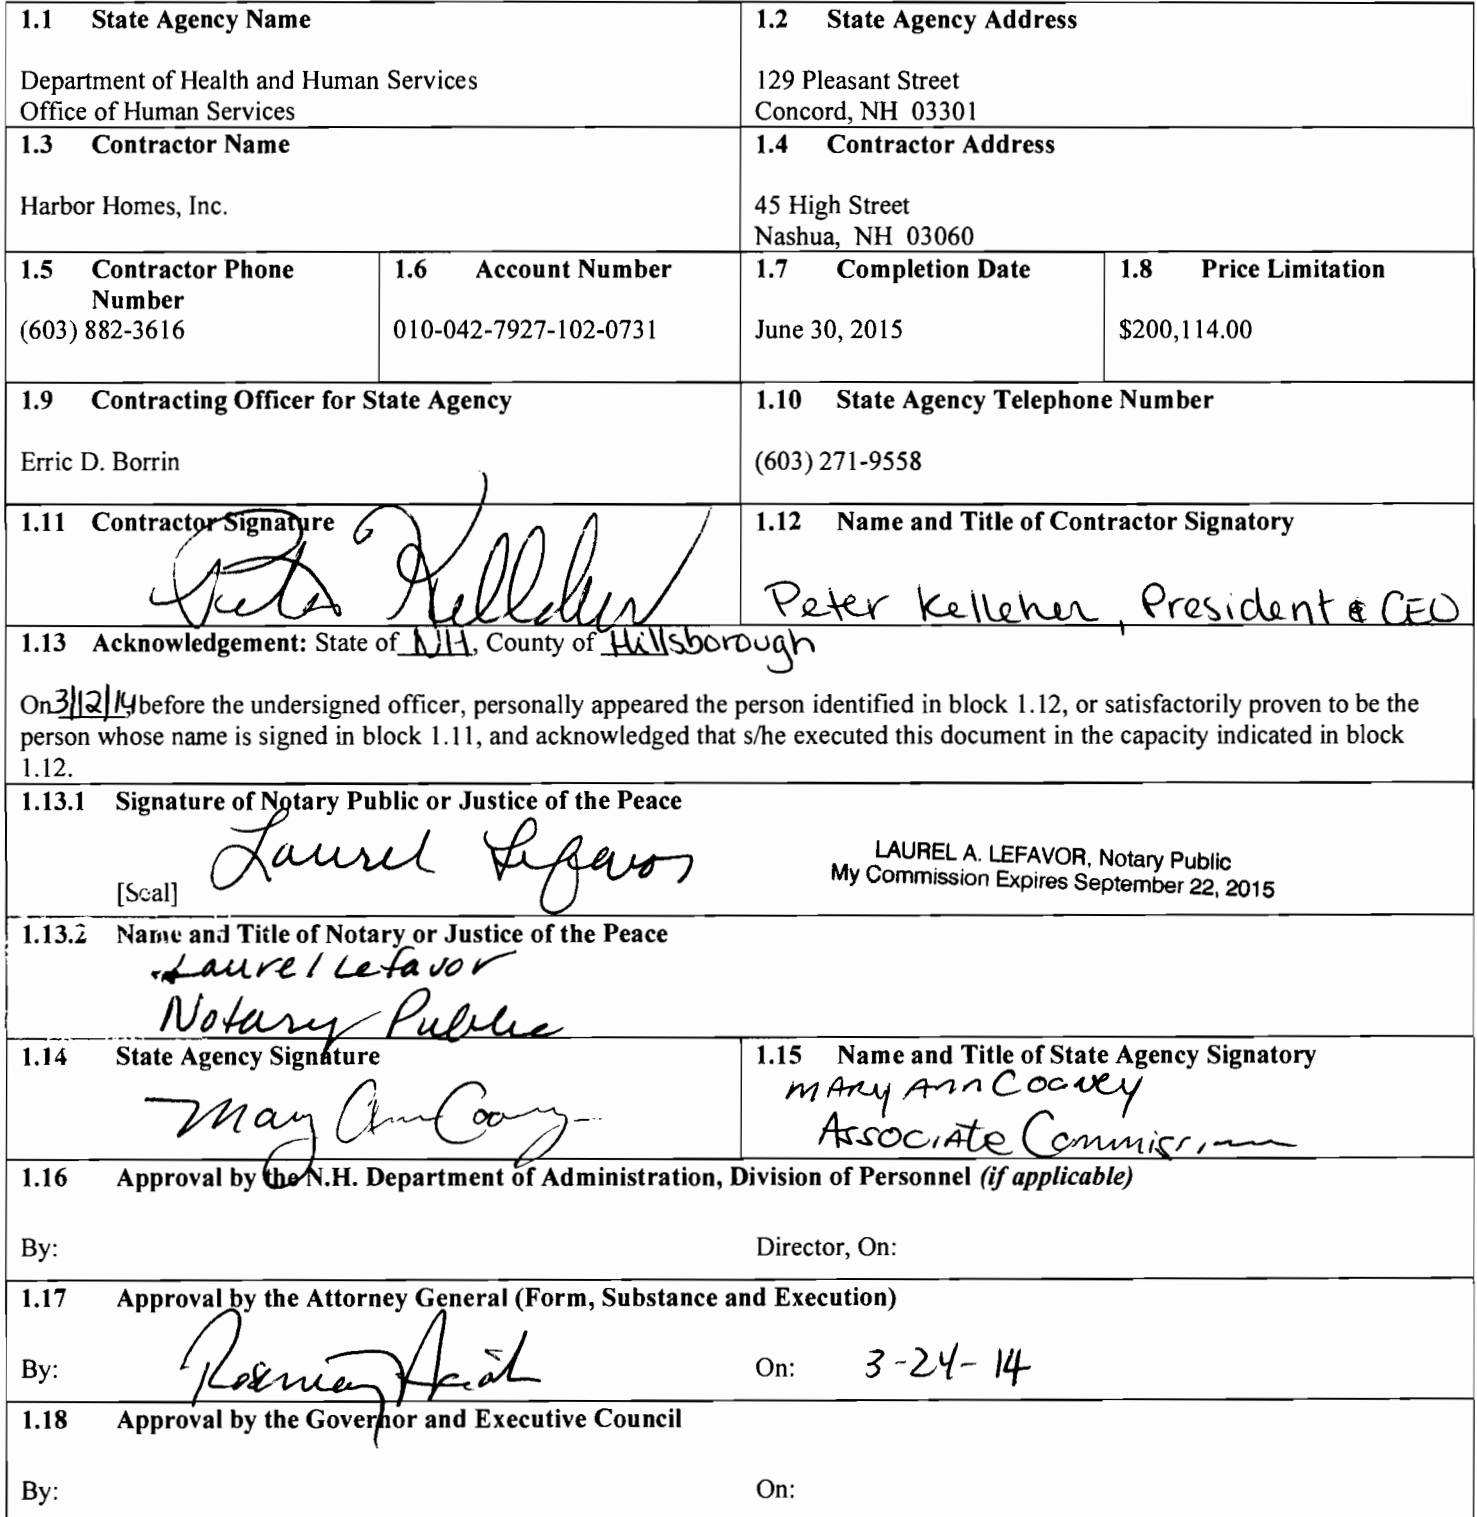 1.1 State Agency Name
Department of Health and Human Services
Office of Human Services
1.2 State Agency Address
129 Pleasant Street
Concord, NH 03301
1.3 Contractor Name
Harbor Homes, Inc.
1.4 Contractor Address
45 High Street
Nashua, NH 03060
1.5 Contractor Phone
Number
(603) 882-3616
1.6 Account Number
010-042-7927-102-0731
1.7 Completion Date
June 30, 2015
1.8 Price Limitation
$200,114.00
1.9 Contracting Officer for State Agency
Erric D. Borrin
1.10 State Agency Telephone Number
(603) 271-9558
1.11 Contractor Signature
Peter Kelleher
1.12 Name and Title of Contractor Signatory
Peter Kelleher, President & CEO
1.13 Acknowledgement: State of NH, County of Hillsborough
On 3/12/14, before the undersigned officer, personally appeared the person identified in block 1.12, or satisfactorily proven to be the
person whose name is signed in block 1.11, and acknowledged that s/he executed this document in the capacity indicated in block
1.12.
1.13.1 Signature of Notary Public or Justice of the Peace
Laurel Lefavor
[Seal]
LAUREL A. LEFAVOR, Notary Public
My Commission Expires September 22, 2015
1.13.2 Name and Title of Notary or Justice of the Peace
Laurel Lefavor
Notary Public
1.14 State Agency Signature
Mary Ann Cooney
1.15 Name and Title of State Agency Signatory
Mary Ann Cooney
Associate Commissioner
1.16 Approval by the N.H. Department of Administration, Division of Personnel (if applicable)
By:
Director, On:
1.17 Approval by the Attorney General (Form, Substance and Execution)
By: Rosemary
On: 3-24-14
1.18 Approval by the Governor and Executive Council
By:
On: